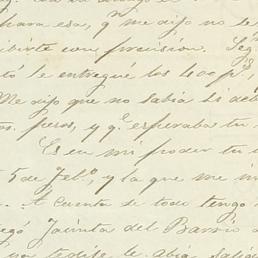 hara esa, qe me dijo no se
ibirte con precision. Seg
tó le entregué los 400 ps,
Me dijo que no sabia si deb
os. pesos, y qe. esperaba tu
Es en mi poder tu
5 de Febo, y la que me in
. A cuenta de todo tengo
egó Jacinta del Barrio